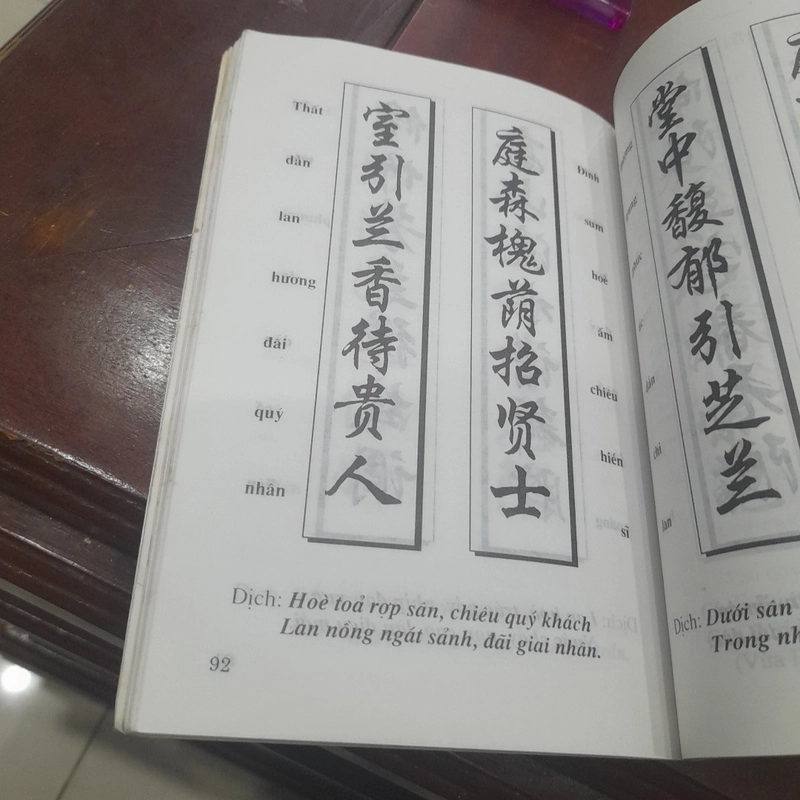 庭森槐荫招贤士
Đình
sum
hoè
ấm
chiêu
hiền
sĩ
室引兰香待贵人
Thất
dẫn
lan
hương
đãi
quý
nhân
Dịch: Hoè toả rợp sân, chiêu quý khách
Lan nồng ngát sảnh, đãi giai nhân.
92
堂中馥郁引芝兰
chi
lan
Dịch: Dưới sân
Trong